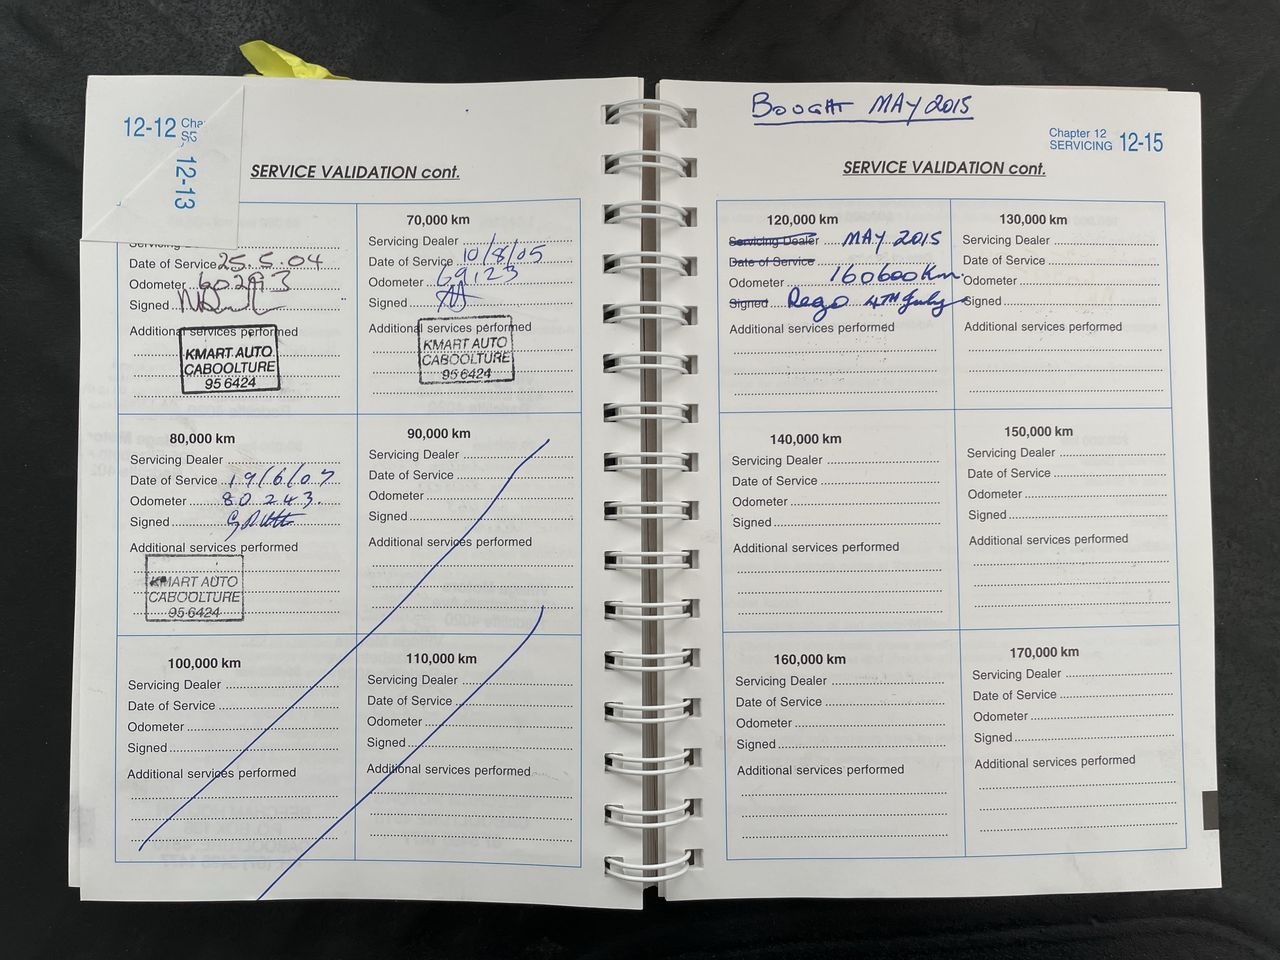 12-12 Cha
12-13
SERVICE VALIDATION cont.
Servicing
Date of Service 25.5.04
Odometer 60293
Signed
Additional services performed
KMART AUTO
CABOOLTURE
95 6424
70,000 km
Servicing Dealer
Date of Service 10/8/05
Odometer 69123
Signed
Additional services performed
KMART AUTO
CABOOLTURE
95 6424
80,000 km
Servicing Dealer
Date of Service 19/6/07
Odometer 80243
Signed
Additional services performed
KMART AUTO
CABOOLTURE
95 6424
90,000 km
Servicing Dealer
Date of Service
Odometer
Signed
Additional services performed
100,000 km
Servicing Dealer
Date of Service
Odometer
Signed
Additional services performed
110,000 km
Servicing Dealer
Date of Service
Odometer
Signed
Additional services performed
BOUGHT MAY 2015
Chapter 12
SERVICING 12-15
SERVICE VALIDATION cont.
120,000 km
Servicing Dealer MAY 2015
Date of Service
Odometer 160600 Km.
Signed Rego 4TH July
Additional services performed
130,000 km
Servicing Dealer
Date of Service
Odometer
Signed
Additional services performed
140,000 km
Servicing Dealer
Date of Service
Odometer
Signed
Additional services performed
150,000 km
Servicing Dealer
Date of Service
Odometer
Signed
Additional services performed
160,000 km
Servicing Dealer
Date of Service
Odometer
Signed
Additional services performed
170,000 km
Servicing Dealer
Date of Service
Odometer
Signed
Additional services performed